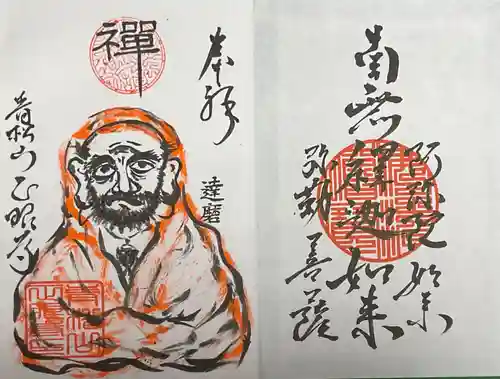 南無釋迦如来
阿弥陀如来
弥勒菩薩
奉拝
禪
達磨
青松山正眼寺